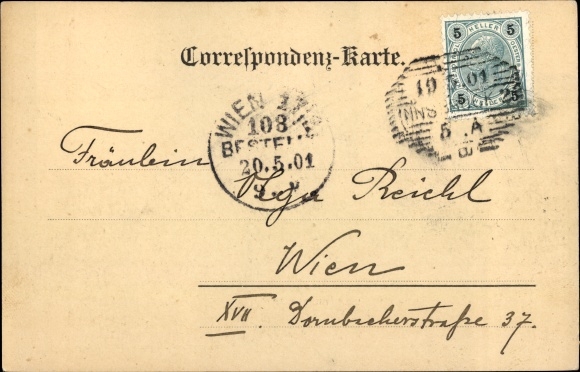 Correspondenz-Karte.
5 HELLER 5
5 5
19 5 01
5 . A
WIEN 17/1
108
BESTELLT
20.5.01
9. V
Fräulein
Reichl
Wien
XVII. Dornbacherstraße 37.